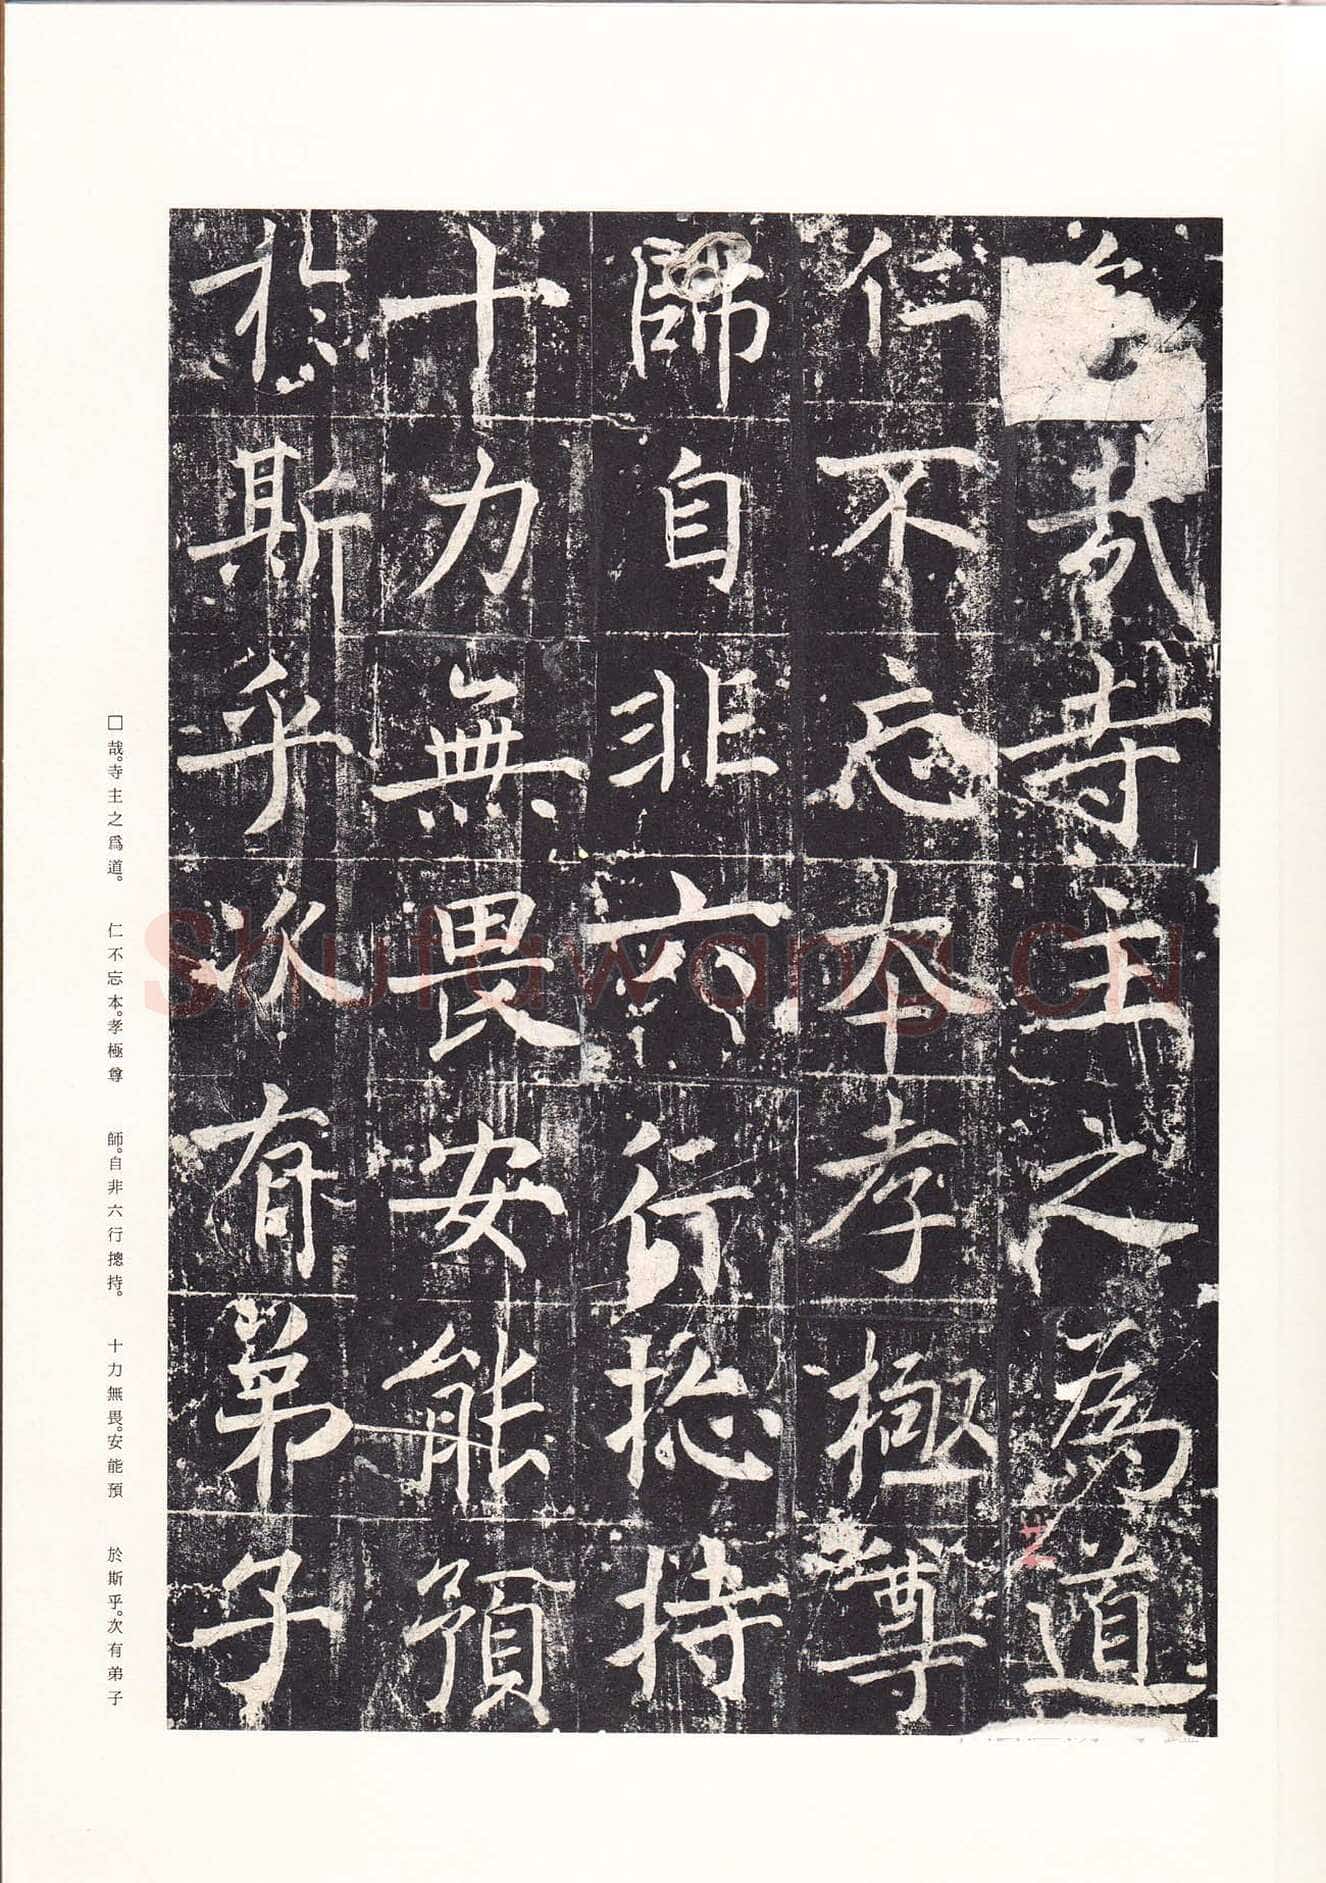 哉寺主之為道
仁不忘本孝極尊
師自非六行揔持
十力無畏安能預
於斯乎次有弟子
□哉。寺主之爲道。 仁不忘本。孝極尊 師。自非六行摠持。 十力無畏。安能預 於斯乎。次有弟子
shufawang.cn